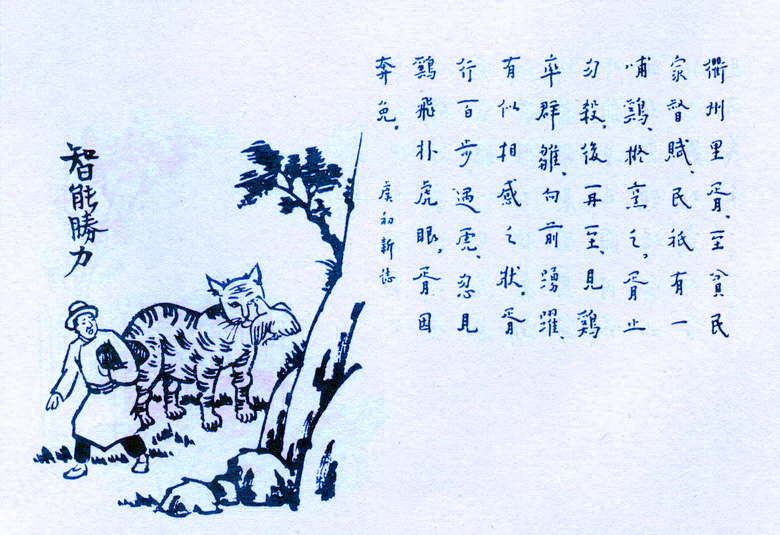 衢州里胥、至貧民
家督賦、民祇有一
哺鷄、拟烹之。胥止
勿殺。後再至、見鷄
率群雛、向前踴躍、
有似相感之狀。胥
行百步遇虎、忽見
鷄飛扑虎眼。胥因
奔免。
虞初新誌
智能勝力